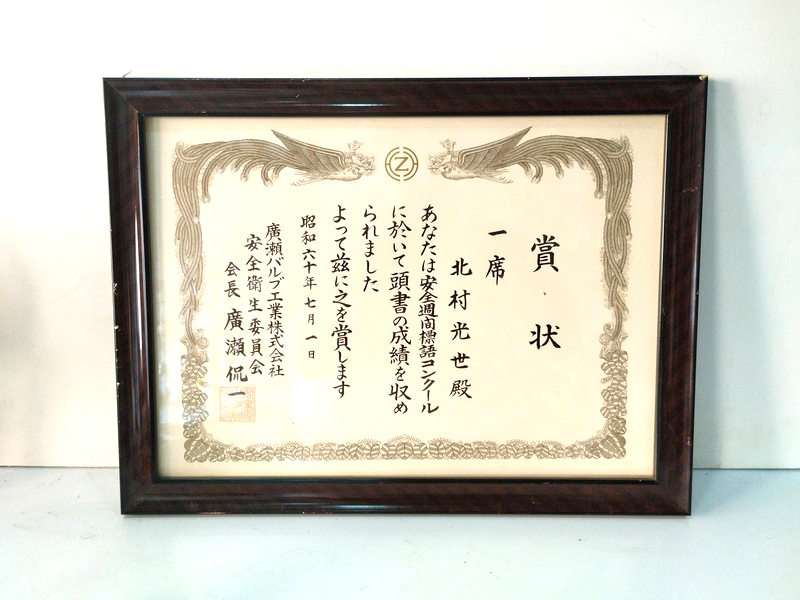 Z
賞状
一席
北村光世殿
あなたは安全週间標語コンクール
に於いて頭書の成績を収め
られました
よって茲に之を賞します
昭和六十年七月一日
廣瀬バルブ工業株式会社
安全衛生委員会
会長 廣瀬侃一